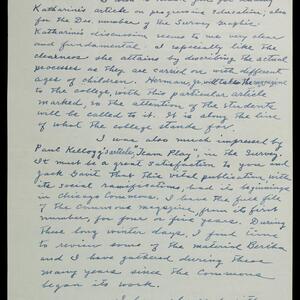 Katharine's article on progressive education, also
for the Dec. number of the Survey Graphic.
Katharine's discussion seems to me very clear
and fundamental. I especially like the
clearness she attains by describing the actual
processes as they are carried on with different
ages of children. Herman will take the magazine
to the college, with this particular article
marked, so the attention of the students
will be called to it. It is along the line
of what the college stands for.
I was also much impressed by
Paul Kellogg's article, "Team Play", in the Survey.
It must be a great satisfaction to you and
Jack Gavit that this vital publication with
its social ramifications, had its beginnings
in Chicago Commons. I have the full file
of the Commons magazine, from its first
number, for four or five years. During
these long winter days, I find time
to review some of the material Bertha
and I have gathered during these
many years since the Commons
began its work.